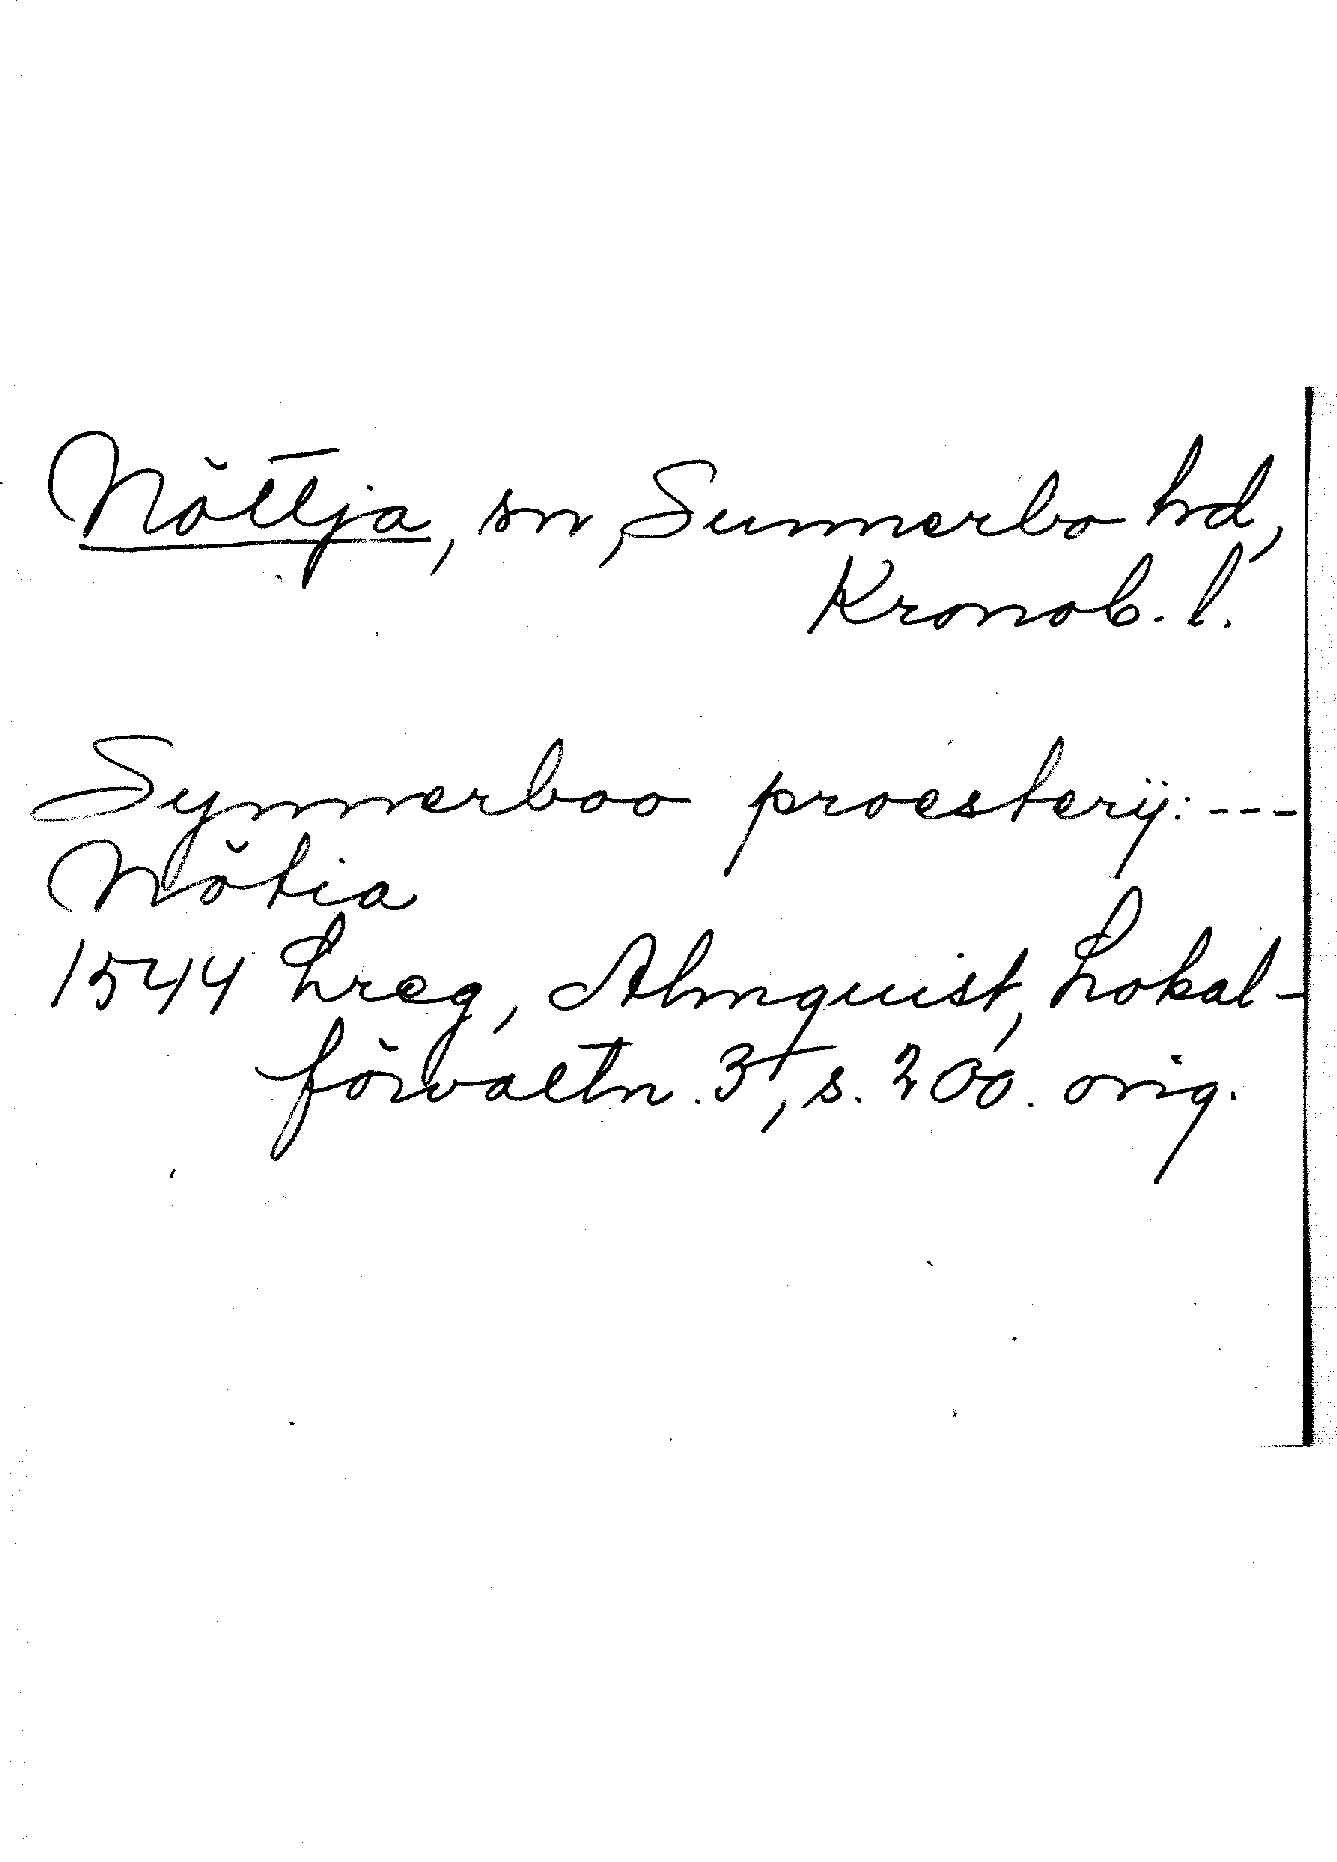 Nöttja, sn, Sunnerbo hd,
Kronob. l.
Synnerboo proesterij: ---
Nötia
1544 Lreg, Almquist, Lokal-
förvaltn. 3, s. 200. orig.